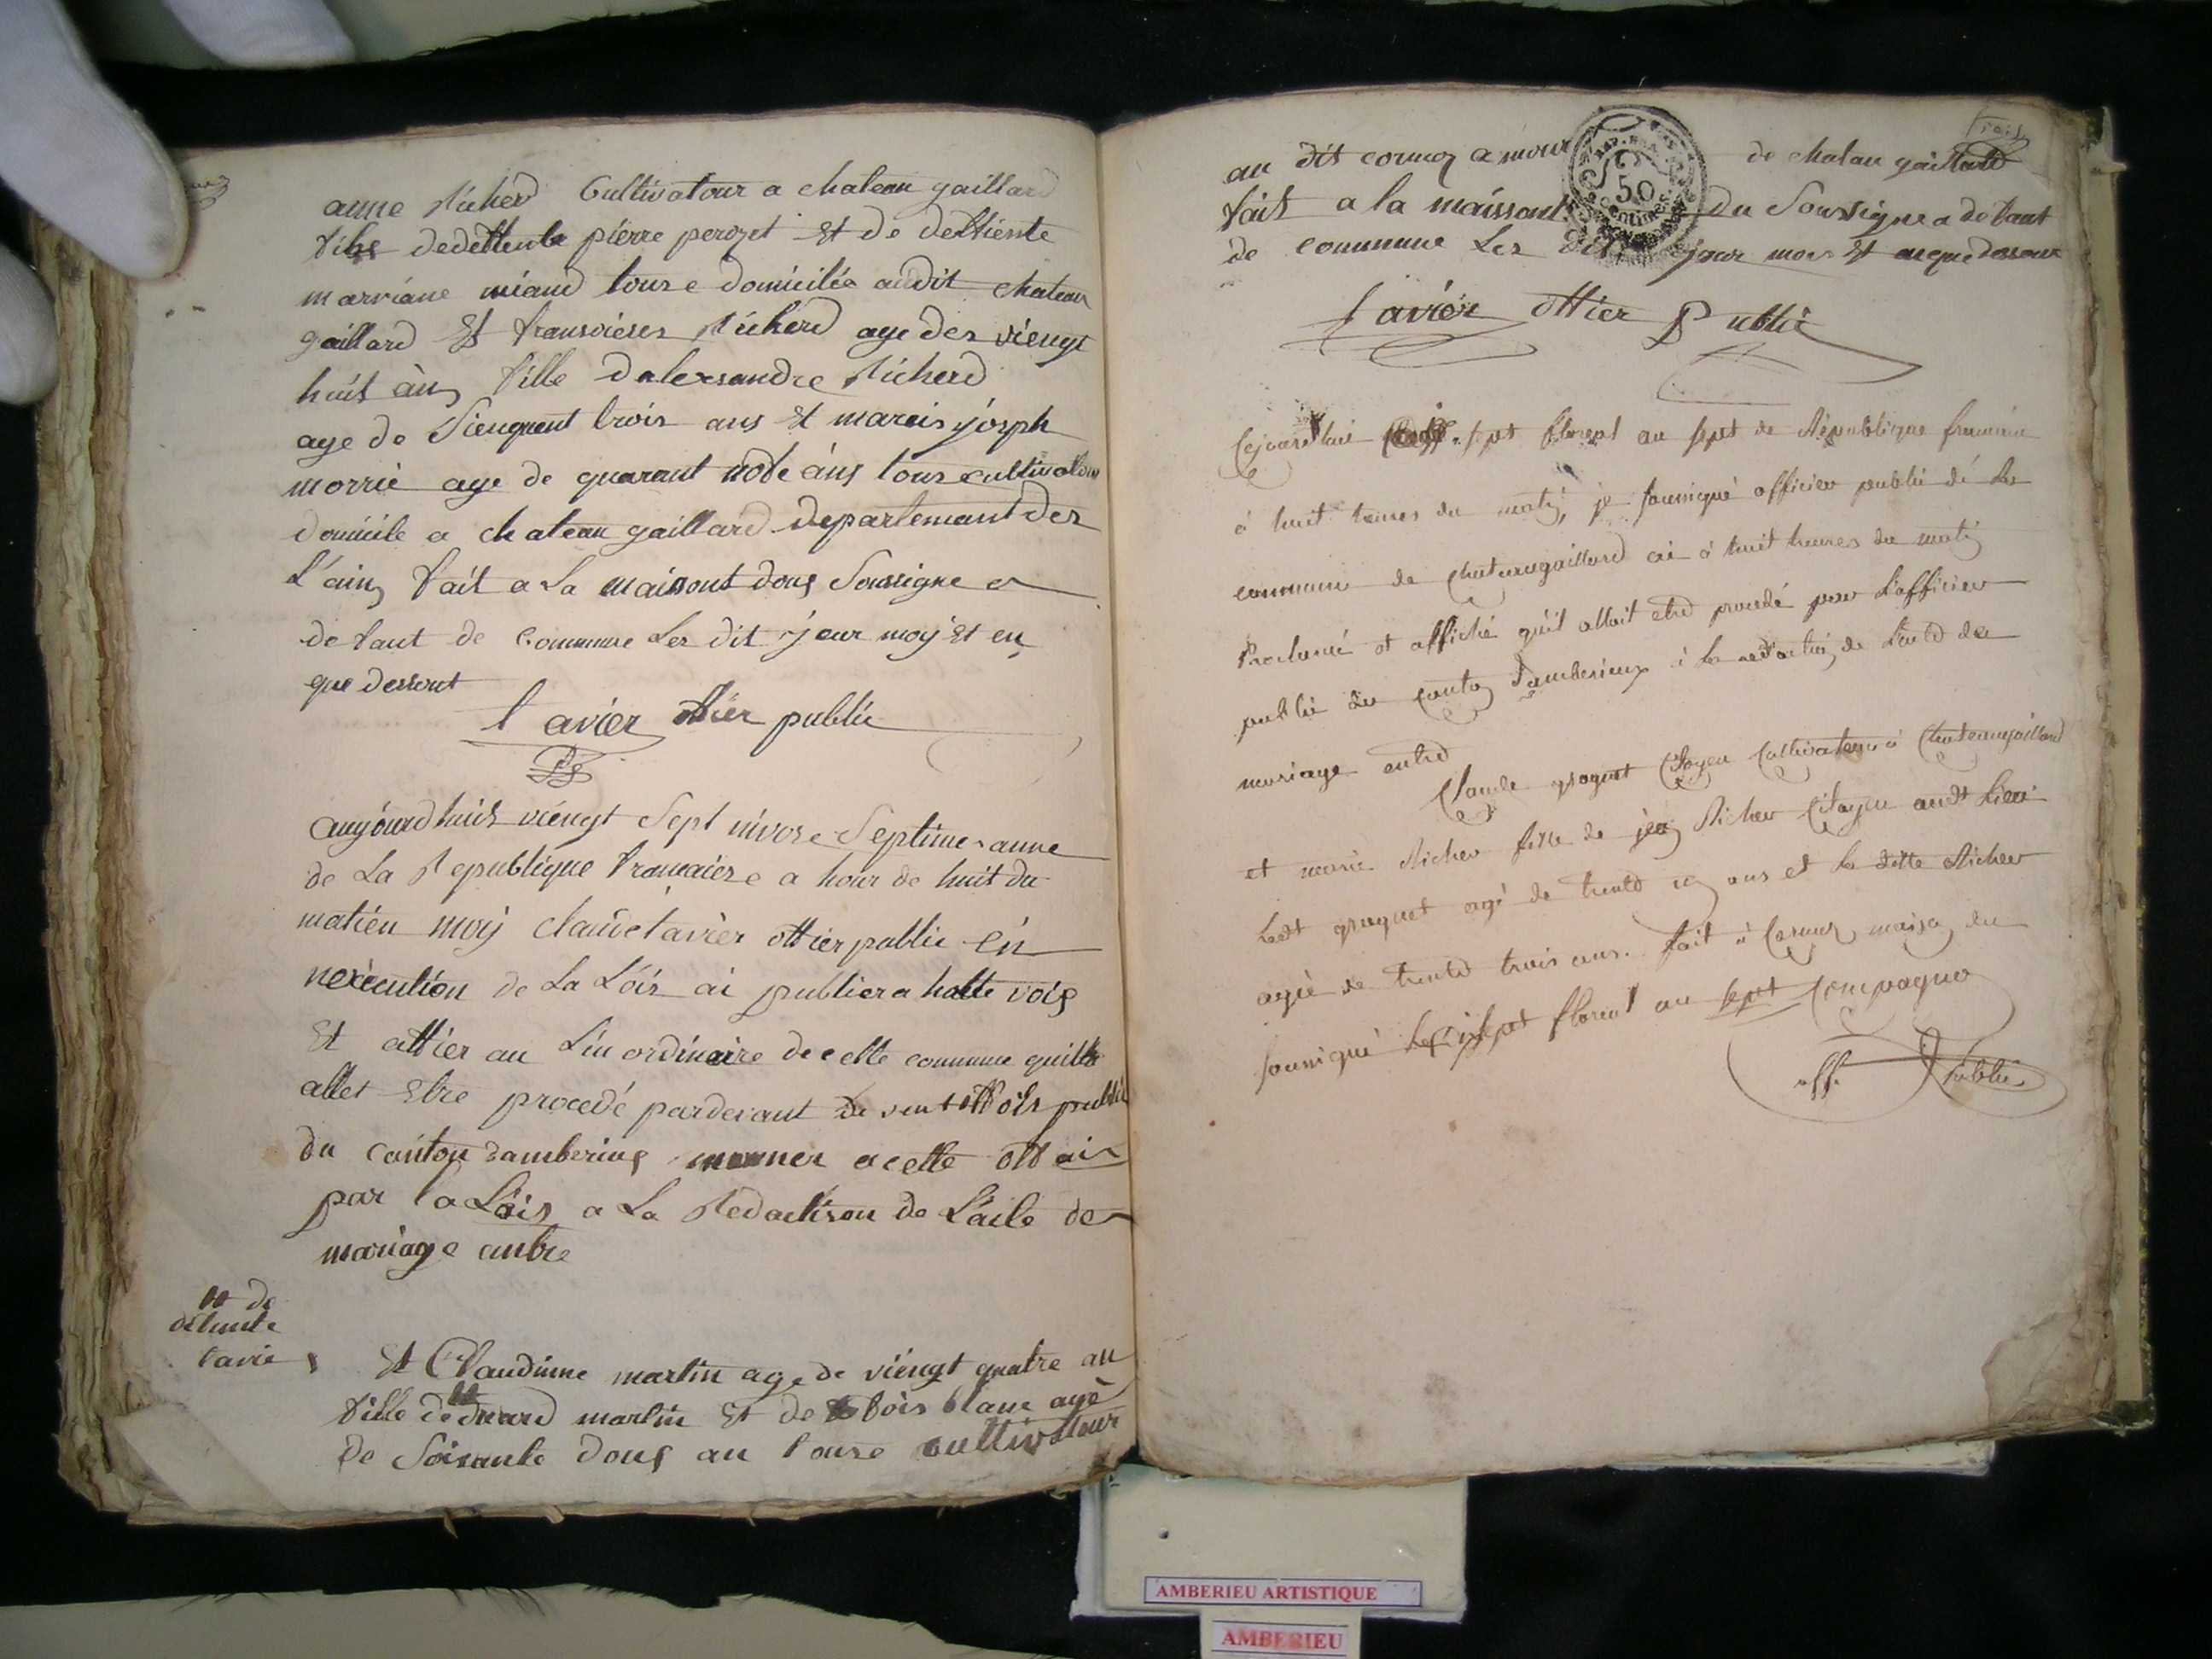 anne Richerd Cultivatour a chateau gaillard
fihs dedeffente pierre perozet Et de deffiente
marriane miand tous e domicilée audit chateau
gaillard Et fransoieses Richerd age des viengt
huit ans fille dalexsandre Richerd
age de Sienquent trois ans Et marcis yosph
morrié age de quarant nofe ans tous cultivatour
domicile a chateau gaillard departemant des
L'ain fait a La maisont dous Soussigne a
defaut de Commune Les dit jour moy Et en
que dessout
favier offier public
aujourdhuit viengt Sept nivose Septime anne
de La Republique francaiez e a hour de huit du
matien moy claude favier offier public en
nexécution de La Lois ai publier a hatte vois
Et affier au Liu ordinaire de cette commune quille
allet Etre procedé pardevant publié
du canton damberiug a cette
par la Lois a La Redactison de L'acte de
mariage antre
de
défunte
favie
Et Claudinne martin age de viengt quatre an
fille de martin Et de bois blanc agé
de Soisante dous an touse cultivatour
trois
au dit cormoz amour de chatau gaillard
fait a la maissont du Soussigne a defaut
de commune Les dit jour mois Et anque dessout
favier offier Public
50
centimes
Cejourdhui sept floreal an sept de République francaise
à huit heures du matin, je soussigné officier public dé la
commune de Chateaugaillard ai à huit heures du matin
Proclamé et affiché qu'il alloit etre procédé par L'officier
public du canton d'amberieux à la redaction de L'acte de
mariage entre
Claude groguet Citoyen Cultivateur à Chateaugaillard
et marie Richer fille de jean Richer Citoyen audt Lieu
Ledt groguet agé de trente ans et la ditte Richer
agée de trente trois ans. fait à Cormoz maison du
soussigné Le sept floreal an sept Compagnon
off. Public
AMBERIEU ARTISTIQUE
AMBERIEU